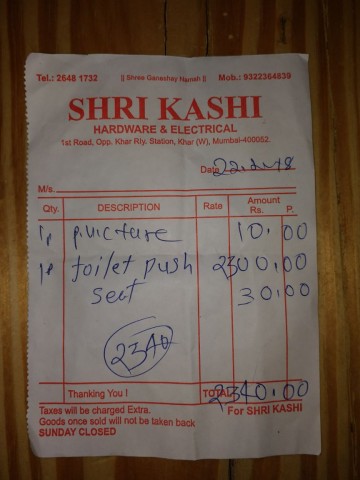 Tel.: 2648 1732 || Shree Ganeshay Namah || Mob.: 9322364839
SHRI KASHI
HARDWARE & ELECTRICAL
1st Road, Opp. Khar Rly. Station, Khar (W), Mumbai-400052.
Date
M/s.
Qty. DESCRIPTION Rate Amount
Rs. P.
puncture 10.00
toilet push 2300.00
seat 30.00
2340
Thanking You ! TOTAL 2340.00
Taxes will be charged Extra. For SHRI KASHI
Goods once sold will not be taken back
SUNDAY CLOSED